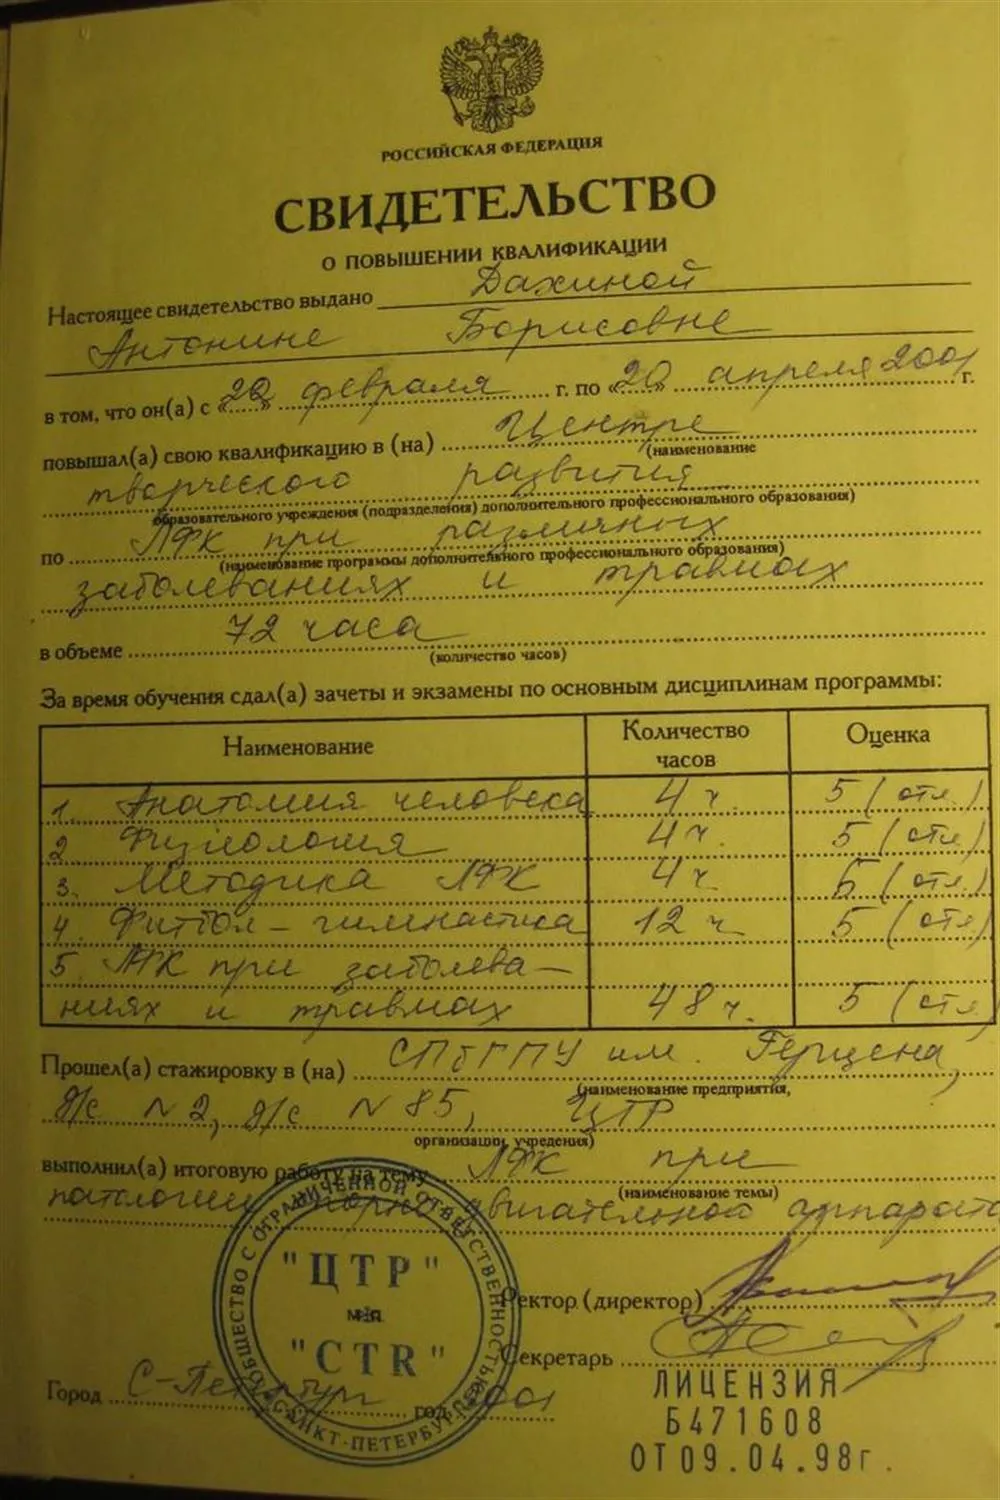 РОССИЙСКАЯ ФЕДЕРАЦИЯ
СВИДЕТЕЛЬСТВО
О ПОВЫШЕНИИ КВАЛИФИКАЦИИ
Настоящее свидетельство выдано Дахиной
Антонине Борисовне
в том, что он(а) с «20» февраля г. по «20» апреля 2001 г.
повышал(а) свою квалификацию в (на) Центре
(наименование
творческого развития
образовательного учреждения (подразделения) дополнительного профессионального образования)
по ЛФК при различных
(наименование программы дополнительного профессионального образования)
заболеваниях и травмах
в объеме 72 часа
(количество часов)
За время обучения сдал(а) зачеты и экзамены по основным дисциплинам программы:
Наименование Количество часов Оценка
1. Анатомия человека 4 ч. 5 (отл.)
2. Физиология 4 ч. 5 (отл)
3. Методика ЛФК 4 ч. 5 (отл.)
4. Фитбол-гимнастика 12 ч. 5 (отл)
5. ЛФК при заболева-
ниях и травмах 48 ч. 5 (отл)
Прошел(а) стажировку в (на) СПбГПУ им. Герцена,
(наименование предприятия,
д/с N 2, д/с N 85, ЦТР
организации, учредения)
выполнил(а) итоговую работу на тему ЛФК при
(наименование темы)
патологии опорно-двигательной аппарата
ОБЩЕСТВО С ОГРАНИЧЕННОЙ ОТВЕТСТВЕННОСТЬЮ
"ЦТР"
"CTR"
САНКТ-ПЕТЕРБУРГ
Ректор (директор)
Секретарь
Город С-Петербург год 2001
ЛИЦЕНЗИЯ
Б471608
ОТ 09.04.98г.